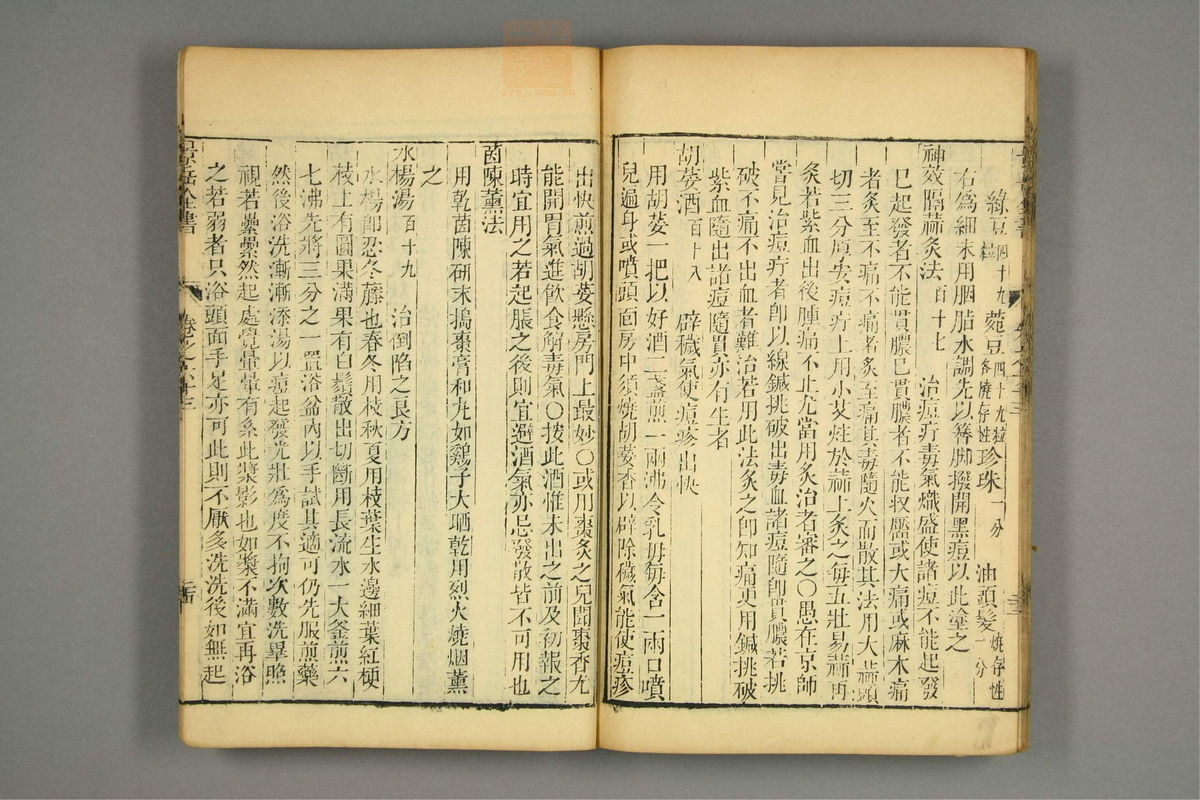 綠豆四十九粒 菀豆四十九粒各燒存性 珍珠一分 油頭髮燒存性一分
右為細末用胭脂水調先以簪脚撥開黑痘以此塗之
神效隔蒜灸法百十七 治痘疔毒氣熾盛使諸痘不能起發
已起發者不能貫膿已貫膿者不能收靨或大痛或麻木痛
者灸至不痛不痛者灸至痛其毒隨火而散其法用大蒜頭
切三分厚安痘疔上用小艾炷於蒜上灸之每五壯易蒜再
灸若紫血出後腫痛不止尤當用灸治者審之○愚在京師
嘗見治痘疔者即以線鍼挑破出毒血諸痘隨即貫膿若挑
破不痛不出血者難治若用此法灸之即知痛更用鍼挑破
紫血隨出諸痘隨貫亦有生者
胡荽酒百十八 辟穢氣使痘疹出快
用胡荽一把以好酒二盞煎一兩沸令乳母每含一兩口噴
兒遍身或噴頭面房中須燒胡荽香以辟除穢氣能使痘疹
出快煎過胡荽懸房門上最妙○或用棗炙之兒聞棗香尤
能開胃氣進飲食解毒氣○按此酒惟未出之前及初報之
時宜用之若起脹之後則宜避酒氣亦忌發散皆不可用也
茵陳薰法
用乾茵陳研末搗棗膏和丸如鷄子大晒乾用烈火燒烟薰
之
水楊湯百十九 治倒陷之良方
水楊即忍冬藤也春冬用枝秋夏用枝葉生水邊細葉紅梗
枝上有圓果滿果有白鬚散出切斷用長流水一大釜煎六
七沸先將三分之一置浴盆內以手試其適可仍先服煎藥
然後浴洗漸漸添湯以痘起發光壯為度不拘次數洗畢照
視若纍纍然起處覺暈暈有系此漿影也如漿不滿宜再浴
之若弱者只浴頭面手足亦可此則不厭多洗洗後如無起
景岳全書
卷之六十三